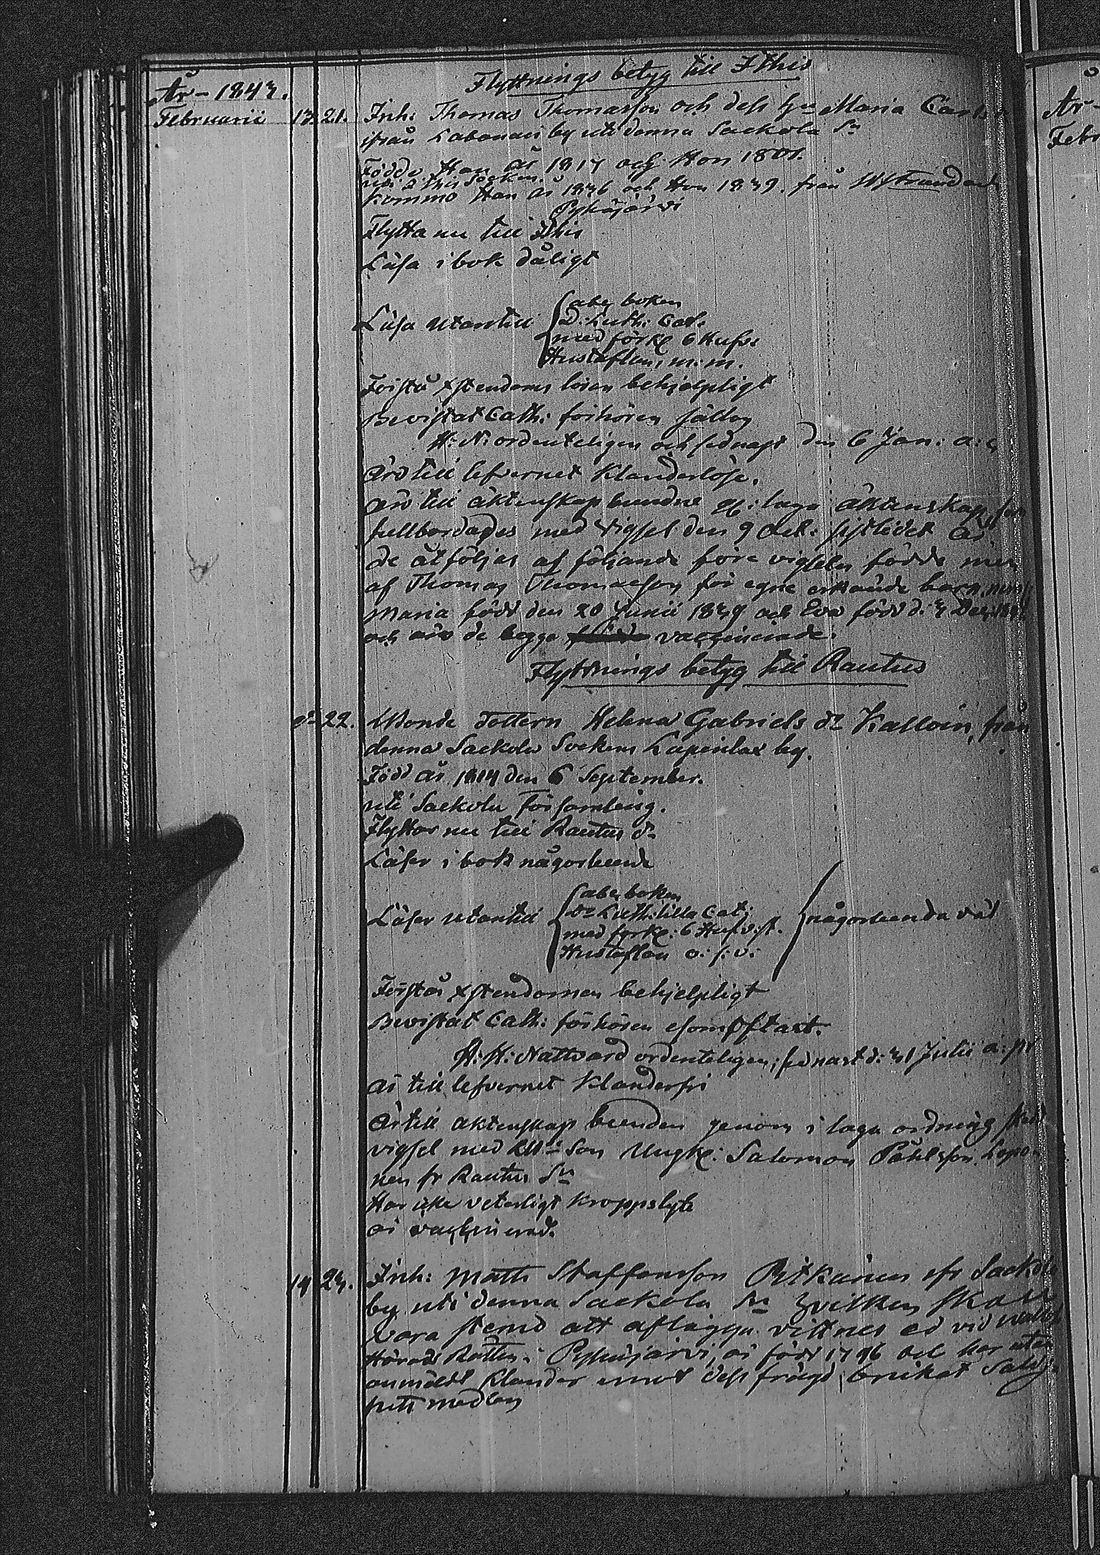 Flyttnings betyg till Ithis
År - 1843.
Februarii 13. 21. Inh: Thomas Thomasson och dess hu Maria Carls
ifrån Labanai by uti denna Sackola Sn
Födde Han år 1817 och Hon 1801.
uti Socken
kommo Han år 1836 och Hon 1839. från
Pyhäjärvi
Flytta nu till Ithis
Läsa i bok dåligt
Läsa utantill
abc boken
D: Luth: Cat.
med förkl 6 Hufs:
Hustaflan, m: m.
Förstå xstendoms loren behjelpligt
Bevistat Cath: förhören sällan
H: N: ordenteligen och sednast den 6 Jan: a: c
äro till lefvernet klanderlöse.
äro till äktenskap bundne g: laga äktenskap, som
fullbordades med vigsel den 9 Oct: sistledet år.
De åtföljas af följande före vigseln födde men
af Thomas Thomasson för egne erkände barn, nem:
Maria född den 20 Junii 1839 och Eva född d: 3 Dec:
och äro de begge vaccinerade.
Flyttnings betyg till Rautus
d: 22. Bonde dottern Helena Gabriels dr Kalloin, från
denna Sackola Sockens Lapinlax by.
Född år 1814 den 6 September.
uti Sackola Församling.
Flyttar nu till Rautus Sn
Läser i bok någorlunda
Läser utantill
abc boken
Dr Luth: lilla Cat:
med förkl: 6 Hufvst.
Hustaflan o. s. v:
någorlunda väl
Förstår xstendomen behjelpligt
Bevistat Cath: förhören esomoftast.
H. H: Nattvard ordenteligen; sednast d: 31 Julii a: pr
är till lefvernet klanderfri
är till äktenskap bunden genom i laga ordning skedd
vigsel med Bde Son Ungk: Salomon Påhlsson Lopo-
nen fr Rautus Sn
Har icke veterligt kroppslyte
är vaccinerad.
14 23. Inh: Matts Staffansson Pitkänen ifr Sackola
by uti denna Sackola Sn hvilken skall
vara stemd att aflägga vittnes ed vid
Härads Rätten i Pyhäjärvi, är född 1796 och har utan
anmäldt klander emot dess fräjd, brukat Salig-
hets medlen